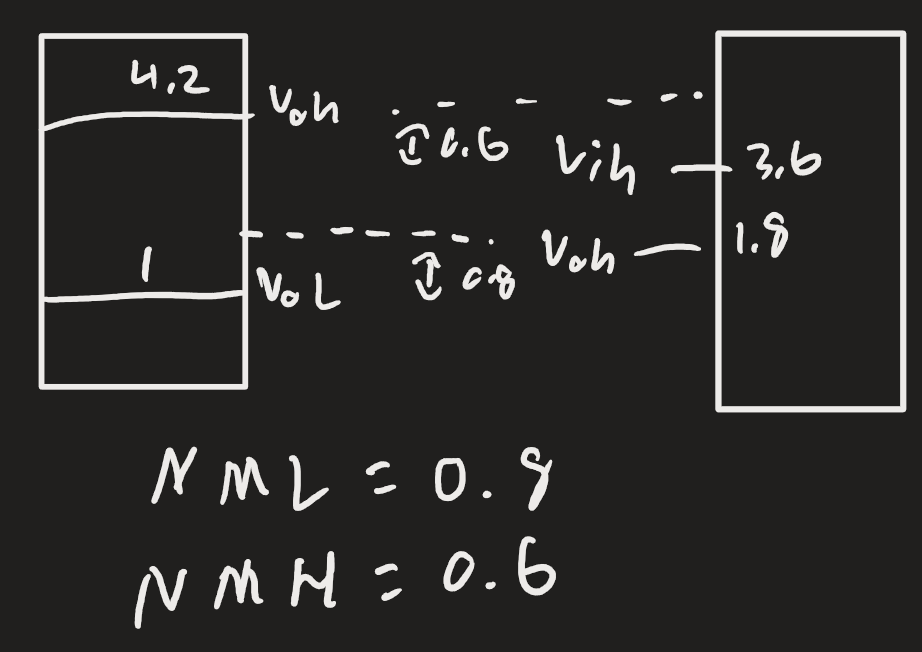 4.2 Voh
0.6 Vih 3.6
Voh 1.8
1 VoL 0.8
NML = 0.8
NMH = 0.6